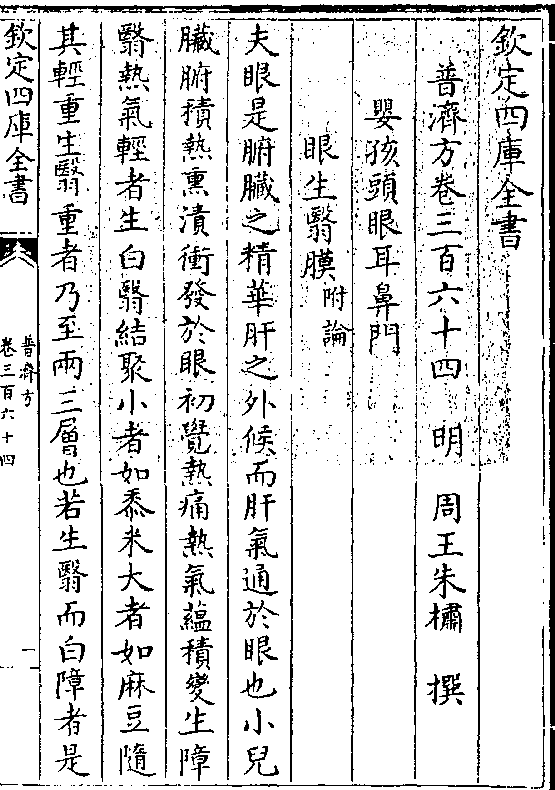 欽定四庫全書
普濟方卷三百六十四　明　周王朱橚　撰
嬰孩頭眼耳鼻門
眼生翳膜附論
夫眼是腑臟之精華肝之外候而肝氣通於眼也小兒
臟腑積熱熏漬衝發於眼初覺熱痛熱氣蘊積變生障
翳熱氣輕者生白翳結聚小者如黍米大者如麻豆隨
其輕重生翳重者乃至兩三層也若生翳而白障者是
欽定四庫全書
普濟方
卷三百六十四
一